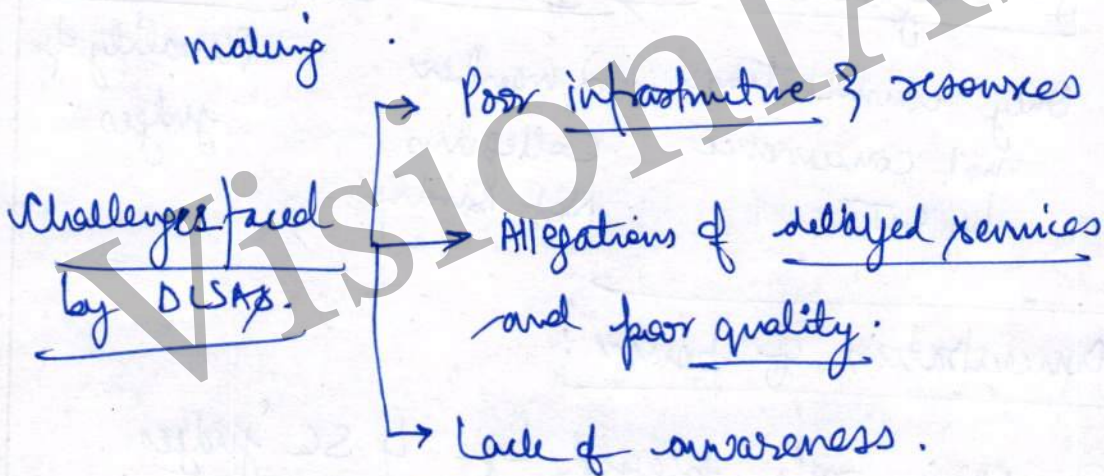 making.
Challenges faced
by DLSAs.
→ Poor infrastructure & resources
→ Allegations of delayed services
and poor quality.
→ Lack of awareness.
VisionIA